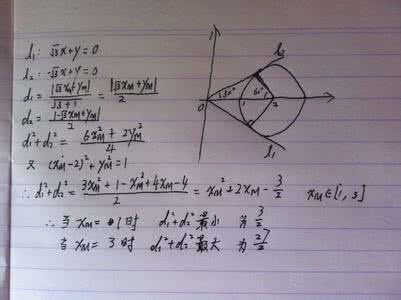 l₁: √3x+y=0
l₂: -√3x+y=0
d₁ = |√3x_M+y_M| / √(3+1) = |√3x_M+y_M| / 2
d₂ = |-√3x_M+y_M| / 2
d₁²+d₂² = (6x_M²+2y_M²) / 4
又 (x_M-2)²+y_M²=1
∴ d₁²+d₂² = (3x_M²+1-x_M²+4x_M-4) / 2 = x_M²+2x_M-3/2 x_M∈[1,3]
∴ 当 x_M=1时 d₁²+d₂² 最小 为 3/2
当 x_M=3时 d₁²+d₂² 最大 为 27/2
l₂
30°
60°
0
1
2
l₁